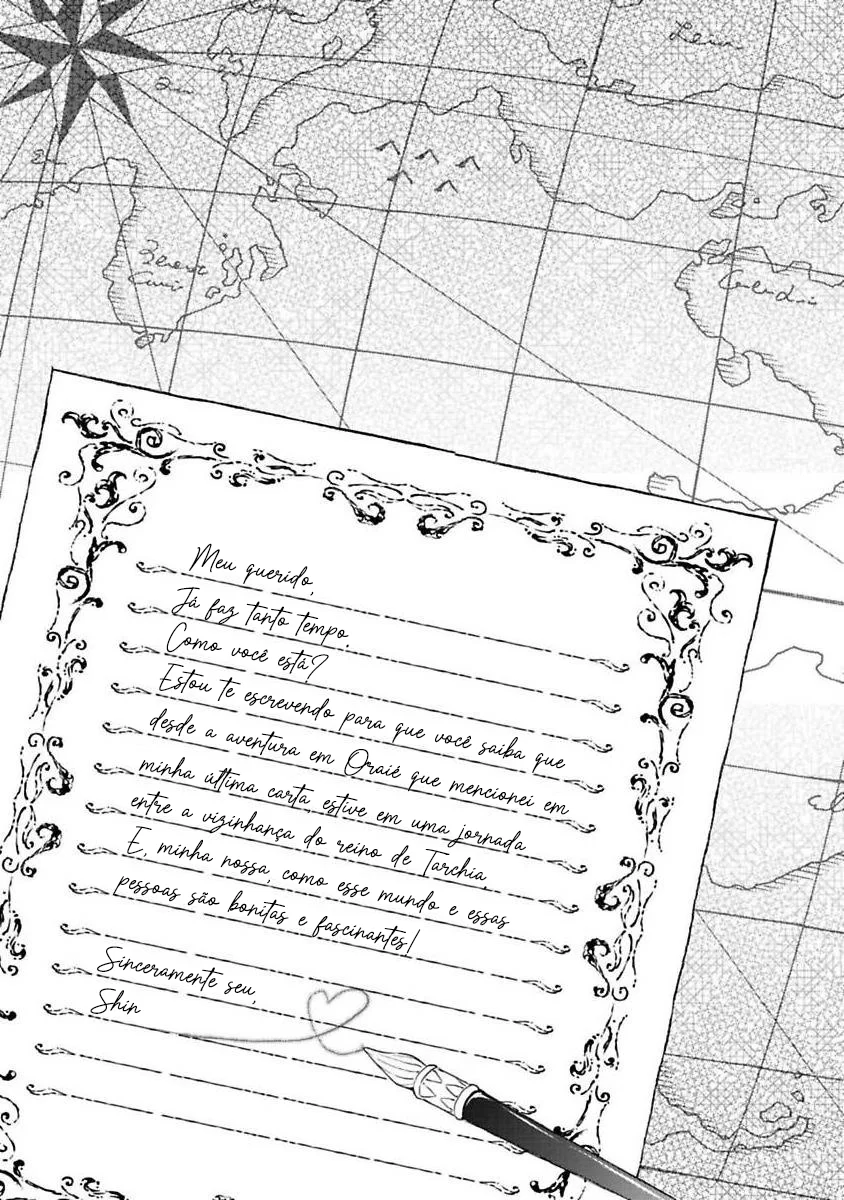 Meu querido,
Já faz tanto tempo.
Como você está?
Estou te escrevendo para que você saiba que
desde a aventura em Oraié que mencionei em
minha última carta, estive em uma jornada
entre a vizinhança do reino de Tarchia.
E, minha nossa, como esse mundo e essas
pessoas são bonitas e fascinantes!
Sinceramente seu,
Shin